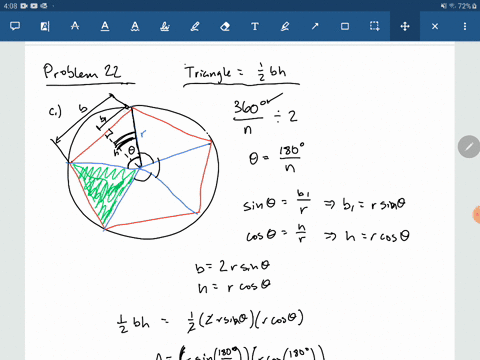 4:08
72%
Problem 22
Triangle = 1/2 bh
c.)
b
b₁
r
h
θ
360°/n ÷ 2
θ = 180°/n
sinθ = b₁/r ⇒ b₁ = r sinθ
cosθ = h/r ⇒ h = r cosθ
b = 2r sinθ
h = r cosθ
1/2 bh = 1/2 (2r sinθ)(r cosθ)